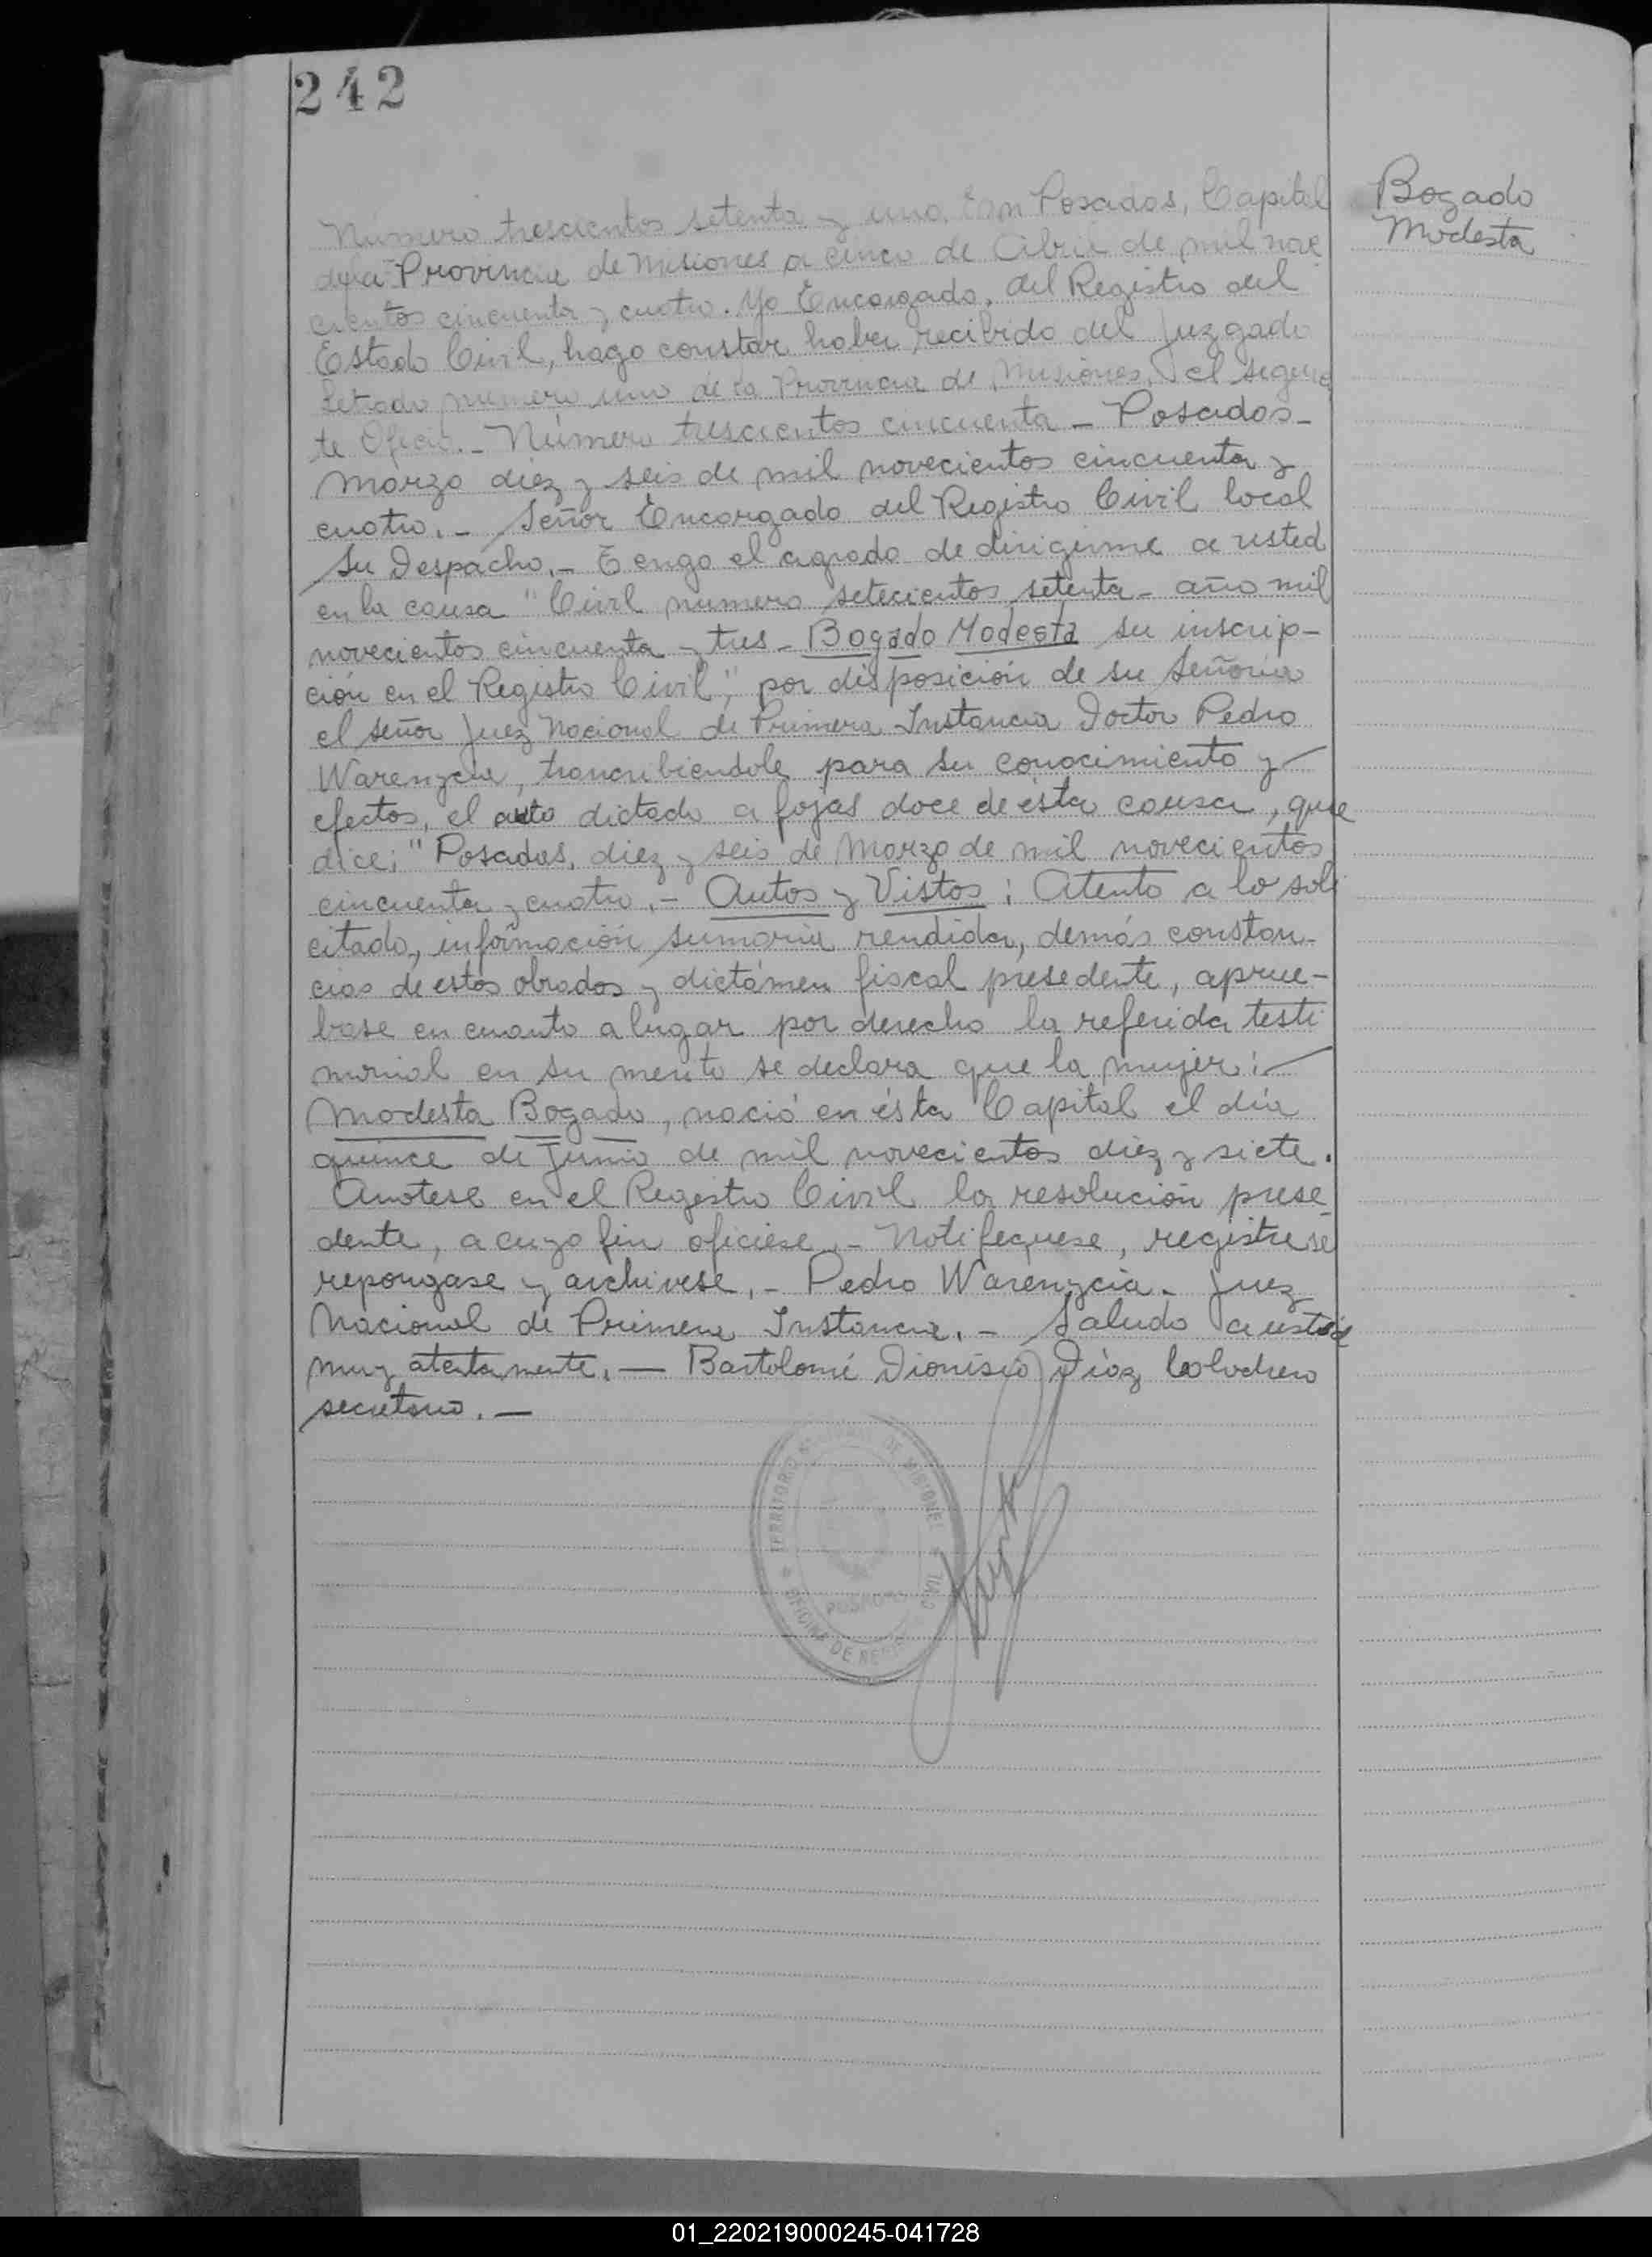 242
Bogado
Modesta
Número trescientos setenta y uno. En Posadas, Capital
de la Provincia de Misiones a cinco de Abril de mil nove
cientos cincuenta y cuatro. Yo Encargado, del Registro del
Estado Civil, hago constar haber recibido del Juzgado
Letrado número uno de la Provincia de Misiones, el siguien
te Oficio.- Número trescientos cincuenta - Posadas -
Marzo diez y seis de mil novecientos cincuenta y
cuatro.- Señor Encargado del Registro Civil local
Su Despacho.- Tengo el agrado de dirigirme a usted
en la causa "Civil numero setecientos setenta - año mil
novecientos cincuenta y tres - Bogado Modesta su inscrip-
ción en el Registro Civil", por disposición de su Señoria
el señor Juez Nacional de Primera Instancia Doctor Pedro
Warenycia, trancribiendole para su conocimiento y
efectos, el auto dictado a fojas doce de ésta causa, que
dice: "Posadas, diez y seis de Marzo de mil novecientos
cincuenta y cuatro.- Autos y Vistos: Atento a lo soli
citado, información sumaria rendida, demás constan-
cias de estos obrados y dictámen fiscal presedente, aprue-
base en cuanto a lugar por derecho la referida testi
monial en su merito se declara que la mujer:
Modesta Bogado, nació en ésta Capital el día
quince de Junio de mil novecientos diez y siete.
Anotese en el Registro Civil la resolución prese_
dente, a cuyo fin oficiese.- Notifiquese, registrese
repongase y archivese.- Pedro Warenycia. Juez
Nacional de Primera Instancia.- Saludo a usted
muy atentamente.- Bartolomé Dionisio Díaz
secretario.-
TERRITORIO NACIONAL DE MISIONES
OFICINA DE REGISTRO CIVIL
POSADAS
01_220219000245-041728